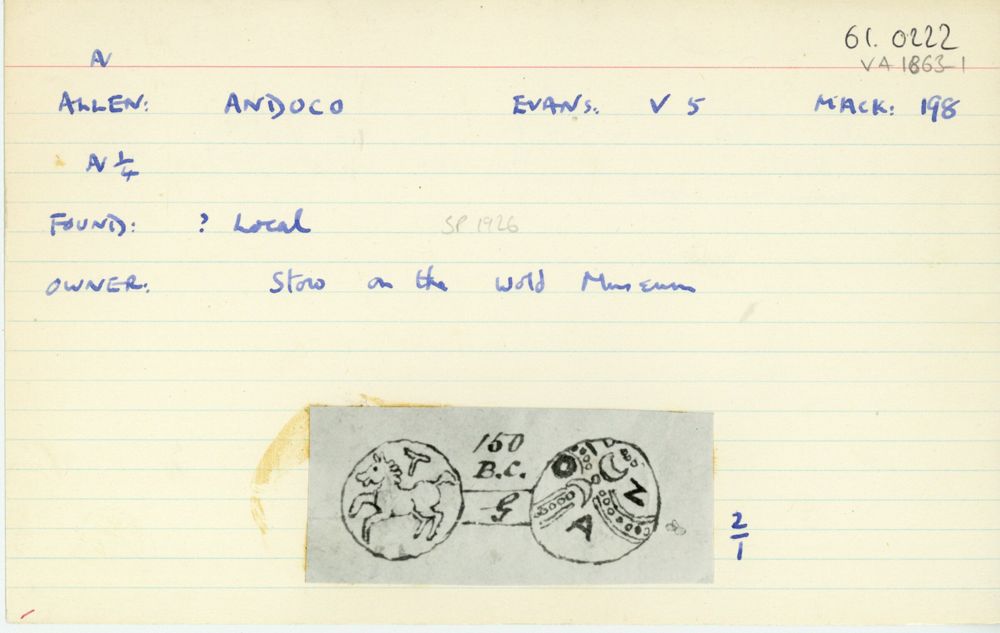 61. 0222
VA 1863-1
N
ALLEN: ANDOCO EVANS: V 5 MACK: 198
N 1/4
FOUND: ? Local SP 1926
OWNER: Stow on the Wold Museum
150
B.C.
G
N
A
2/1